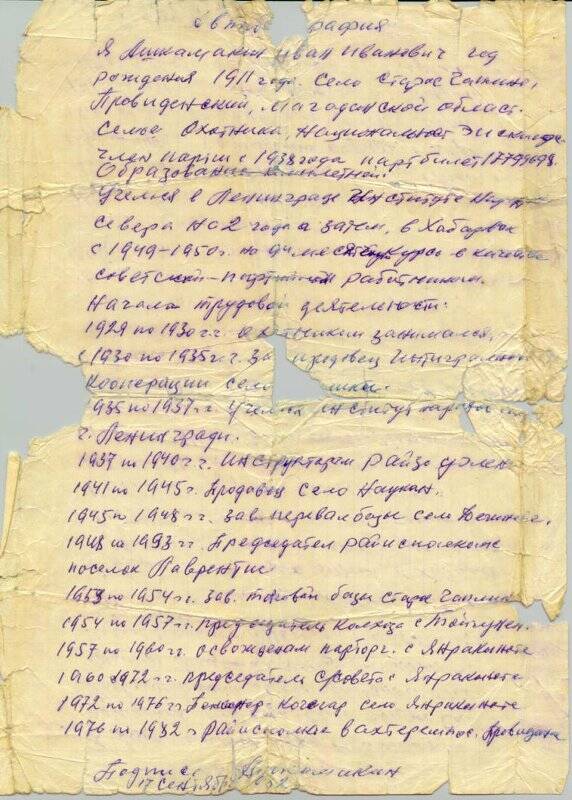 автоб графия
Я Ашкамакин Иван Иванович год
рождения 1911 года. Село Старое Чаплино,
Провиденский, Магаданской област.
Семье Охотника, Националност Эскимос
член парти с 1938 года партбилет 17799698.
Образование
Учился в Ленинграде Институте Нар
Севера на 2 года а затем, в Хабаров
с 1949-1950г. на 9 месяч Курсо с
советский-партийной работником.
Начала трудовой деятелности:
1929 по 1930 г.г. охотником занимался,
с 1930 по 1935 г.г. за продавец Интиграл
Кооперации село
1935 по 1937 г. Учился институт народа
г. Ленингради.
1937 по 1940 г.г. Инструктором райзо Уэлен
1941 по 1945 г. Продовец село Наукан.
1945 по 1948 г.г. зав. перевалбазы село Дежнево.
1948 по 1953 г.г. Председател райисполкоме
поселок Лаврентие
1953 по 1954 г.г. зав. торговой базы старое Чаплино
1954 по 1957 г.г. председатель Колхоза с
1957 по 1960 г.г. освожденам парторг. с Янракиноте
1960 1972 г.г. председатели с/совета с Янракиноте
1972 по 1976 г.г. Пенсионер-Кочегар село Янракиноте
1976 по 1982 г Райисполкоме вахтером пос. Провидения
Подпись Ашкамакин
17 сентябр